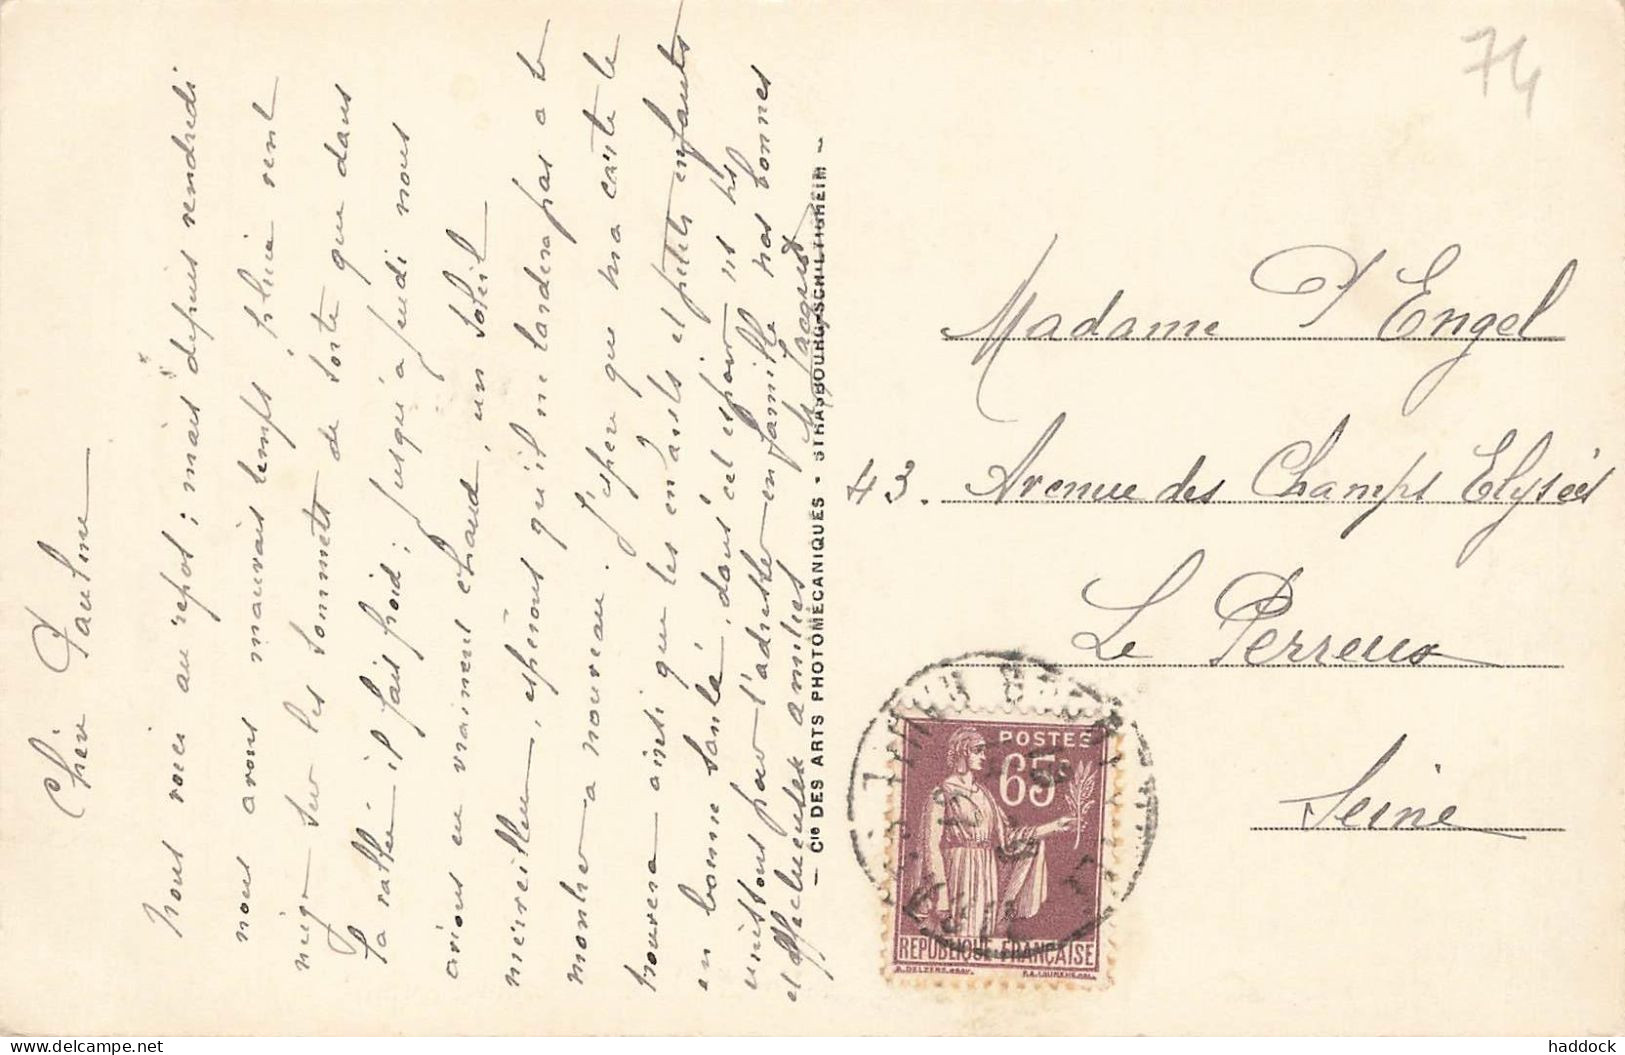 Chère Pauline
Nous voici au repos ; mais depuis vendredi
nous avons mauvais temps, pluie vent
neige sur les sommets de sorte que dans
la vallée il fait froid ; jusqu'à jeudi nous
avions eu vraiment chaud, un soleil
merveilleux, espérons qu'il ne tardera pas à se
montrer à nouveau. J'espère que ma carte te
trouvera ainsi que les enfants et petits enfants
en bonne santé, dans cet espoir ns ns
unissons pour t'adresser en famille nos bonnes
et affectueuses amitiés
Cie DES ARTS PHOTOMÉCANIQUES - STRASBOURG-SCHILTIGHEIM
74
Madame P Engel
43. Avenue des Champs Elysées
Le Perreux
Seine
POSTES
65c
RÉPUBLIQUE FRANÇAISE
haddock